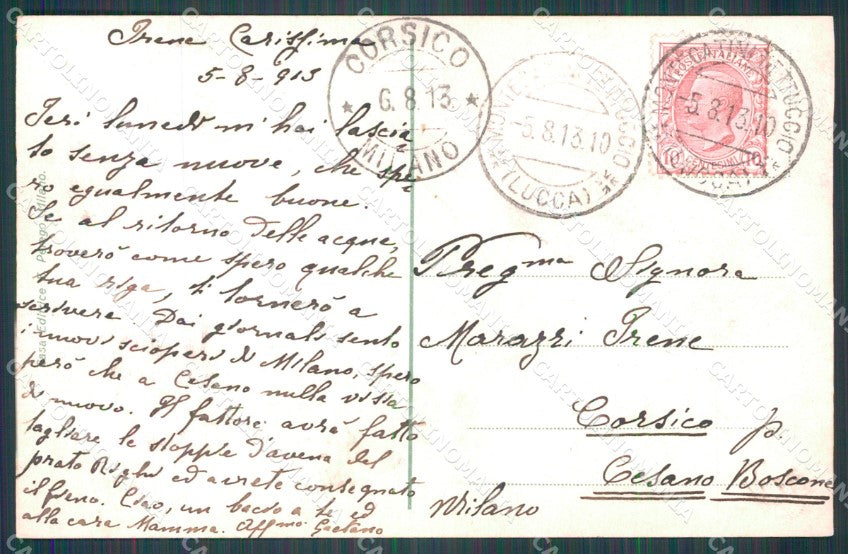 Irene Carissima
5-8-913
Ieri lunedì m'hai lascia
to senza nuove, che spe
ro egualmente buone.
Se al ritorno delle acque,
troverò come spero qualche
tua riga, ti tornerò a
scrivere. Dai giornali sento
i nuovi scioperi di Milano, spero
però che a Cesano nulla vi sia
di nuovo. Il fattore avrà fatto
tagliare le stoppie d'avena del
prato Righi ed avrete consegnato
il fieno. Ciao, un bacio a te ed
alla cara Mamma. Aff.mo Gaetano
CORSICO
6.8.13
MILANO
-5.8.13.10
(LUCCA)
MONTECATINI VETTUCCIO
-5.8.13.10
10
10
Preg.ma Signora
Marazzi Irene
Corsico p
Cesano Boscone
Milano
Casa Editrice
Milano.
CARTOLINOMANIA